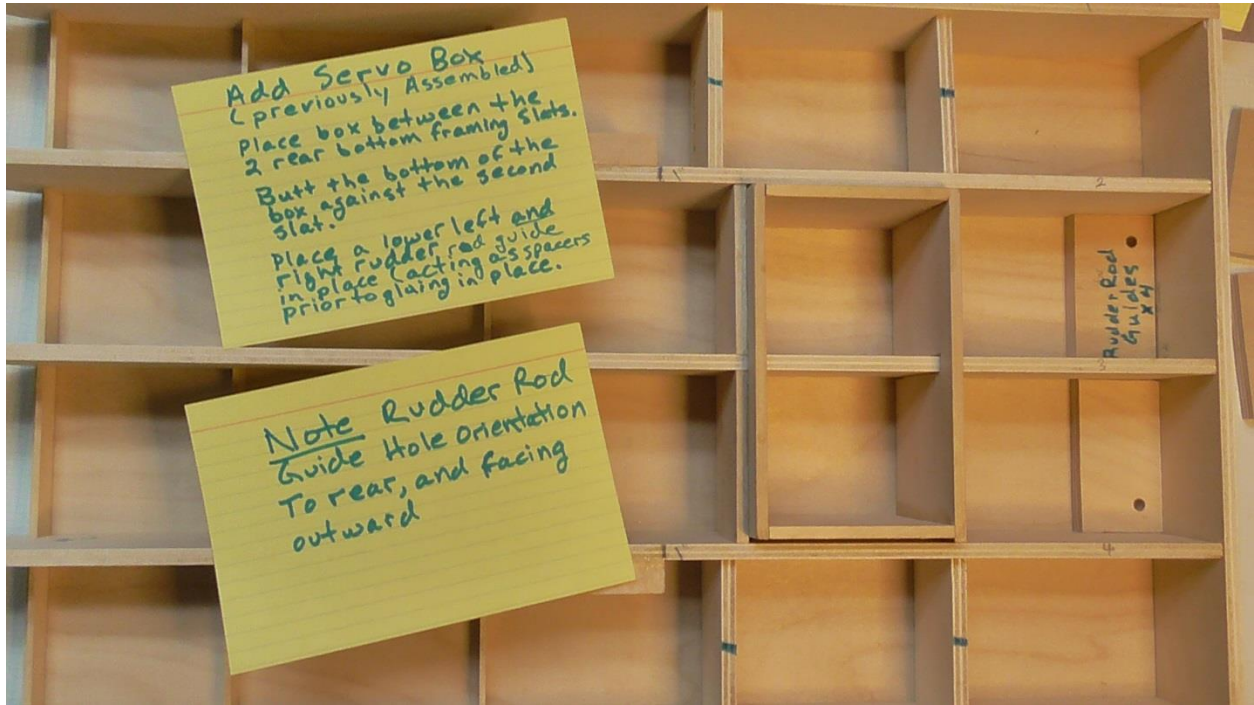 Add Servo Box
(previously Assembled)
Place box between the
2 rear bottom framing slats.
Butt the bottom of the
box against the second
slat.
Place a lower left and
right rudder rod guide
in place (acting as spacers
prior to gluing in place.
Note Rudder Rod
Guide Hole orientation
To rear, and facing
outward
Rudder Rod
Guides
x4
2
3
4